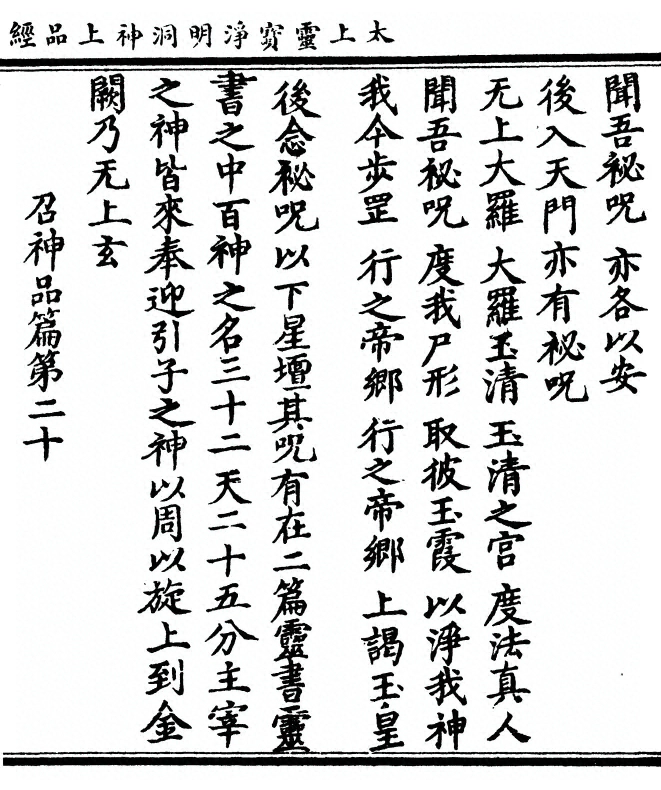 太上靈寶淨明洞神上品經
聞吾祕呪 亦各以安
後入天門亦有祕呪
无上大羅 大羅玉清 玉清之宮 度法真人
聞吾祕呪 度我尸形 取彼玉霞 以淨我神
我今步罡 行之帝鄉 行之帝鄉 上謁玉皇
後念祕呪以下星壇其呪有在二篇靈書靈
書之中百神之名三十二天二十五分主宰
之神皆來奉迎引子之神以周以旋上到金
闕乃无上玄
召神品篇第二十